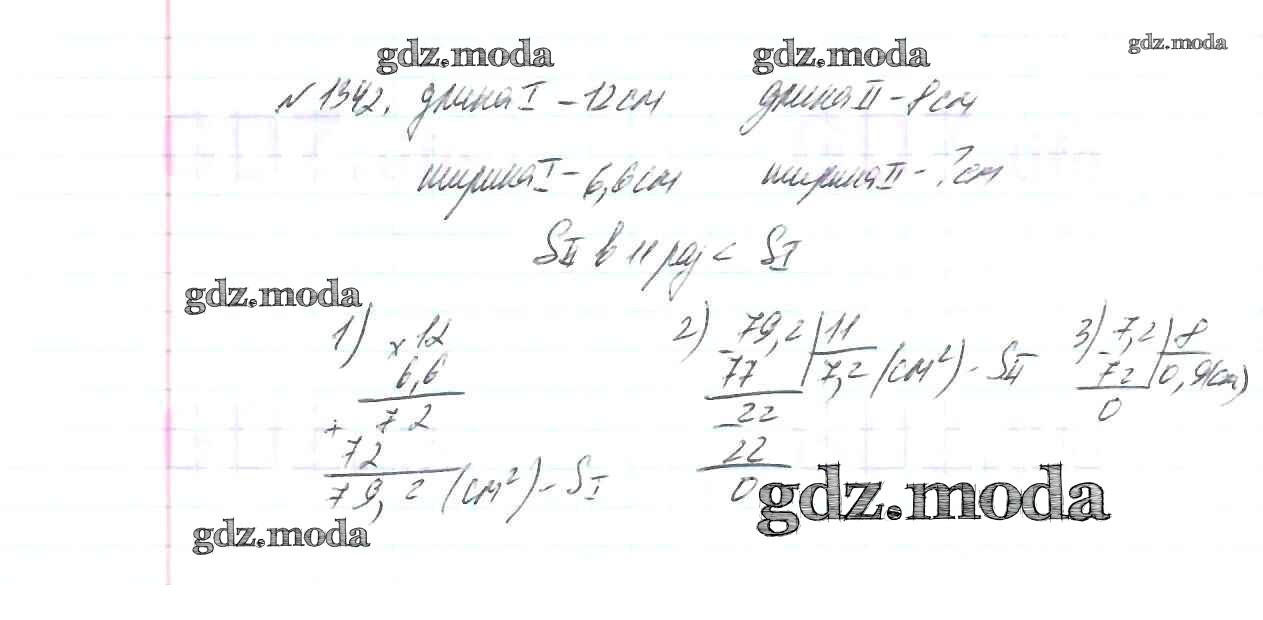 gdz.moda gdz.moda gdz.moda
№1342. длина I – 12см длина II – 8см
ширина I – 6,6см ширина II – ?см
S II в 11 раз < S I
gdz.moda
1) × 12 2) – 79,2 | 11 3) – 7,2 | 8
6,6 77 7,2 (см²) – S II 72 0,9(см)
+ 72 – 22 0
72 22
79,2 (см²) – S I 0
gdz.moda
gdz.moda